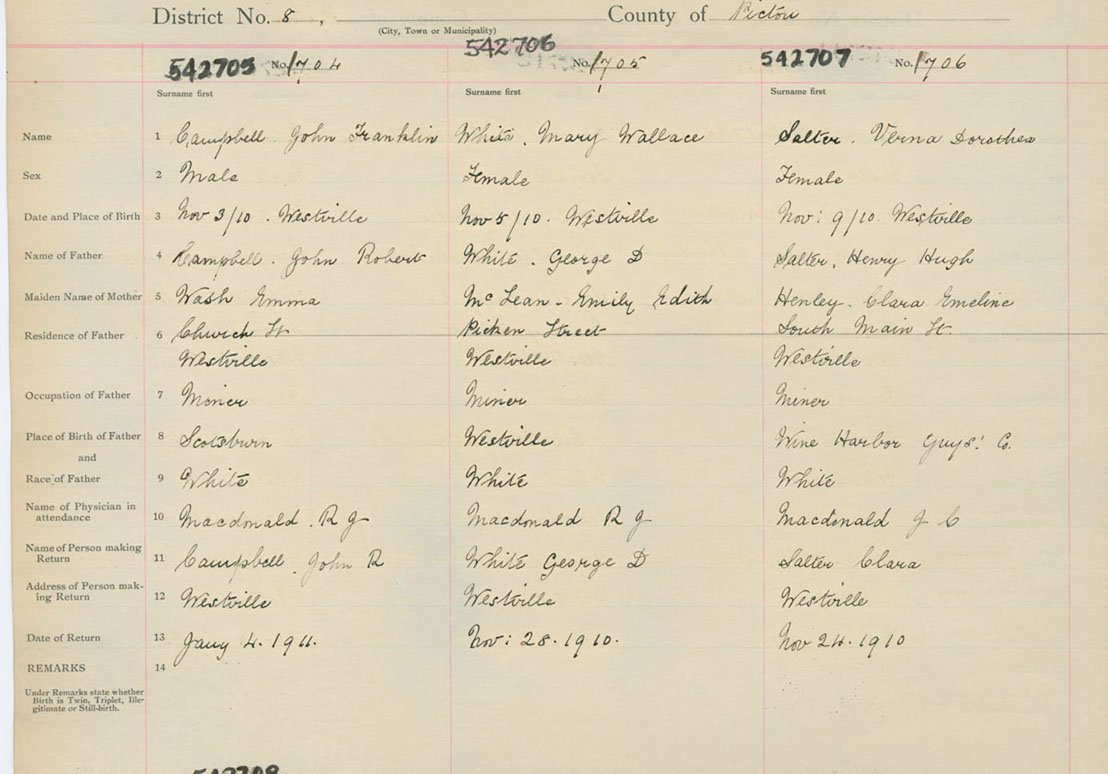 District No. 8, County of Pictou
(City, Town or Municipality)
542705 No. 1704 542706 No. 1705 542707 No. 1706
Surname first Surname first Surname first
Name 1 Campbell John Franklin White. Mary Wallace Salter. Verna Dorothea
Sex 2 Male Female Female
Date and Place of Birth 3 Nov 3/10. Westville Nov 5/10. Westville Nov: 9/10. Westville
Name of Father 4 Campbell. John Robert White. George D Salter, Henry Hugh
Maiden Name of Mother 5 Wash Emma McLean - Emily Edith Henley. Clara Emeline
Residence of Father 6 Church St Picken Street South Main St.
Westville Westville Westville
Occupation of Father 7 Miner Miner Miner
Place of Birth of Father 8 Scotsburn Westville Wine Harbor Guys: Co.
and
Race of Father 9 White White White
Name of Physician in
attendance 10 Macdonald. R G Macdonald R G Macdonald J C
Name of Person making
Return 11 Campbell. John R White George D Salter Clara
Address of Person mak-
ing Return 12 Westville Westville Westville
Date of Return 13 Jany 4. 1911. Nov: 28. 1910. Nov 24. 1910
REMARKS 14
Under Remarks state whether
Birth is Twin, Triplet, Ille-
gitimate or Still-birth.